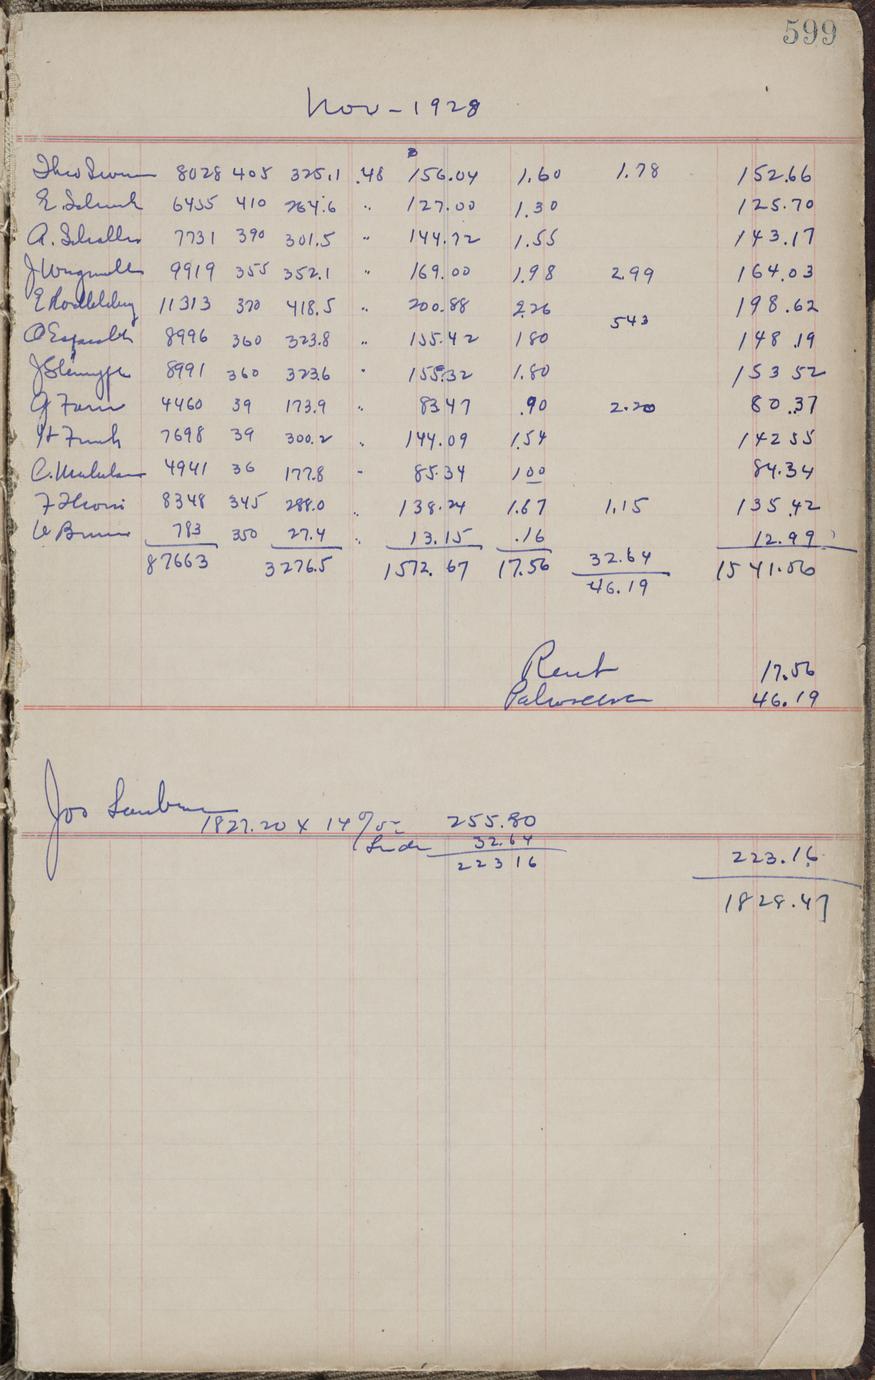 599
Nov - 1928
8028 405 325.1 .48 156.04 1.60 1.78 152.66
E. Schunk 6455 410 264.6 " 127.00 1.30 125.70
A. Schaller 7731 390 301.5 " 144.72 1.55 143.17
9919 355 352.1 " 169.00 1.98 2.99 164.03
11313 370 418.5 " 200.88 2.26 198.62
8996 360 323.8 " 155.42 180 543 148.19
8991 360 323.6 " 155.32 1.80 153 52
4460 39 173.9 " 83 47 .90 2.20 80.37
7698 39 300.2 " 144.09 1.54 142 55
4941 36 177.8 " 85.34 1 00 84.34
8348 345 288.0 " 138.24 1.67 1.15 135.42
783 350 27.4 " 13.15 .16 12.99
87663 3276.5 1572.67 17.56 32.64 1541.06
46.19
Rent 17.56
46.19
Jos
1827.20 X 14% 255.80
32.64
223 16 223.16
1828.47